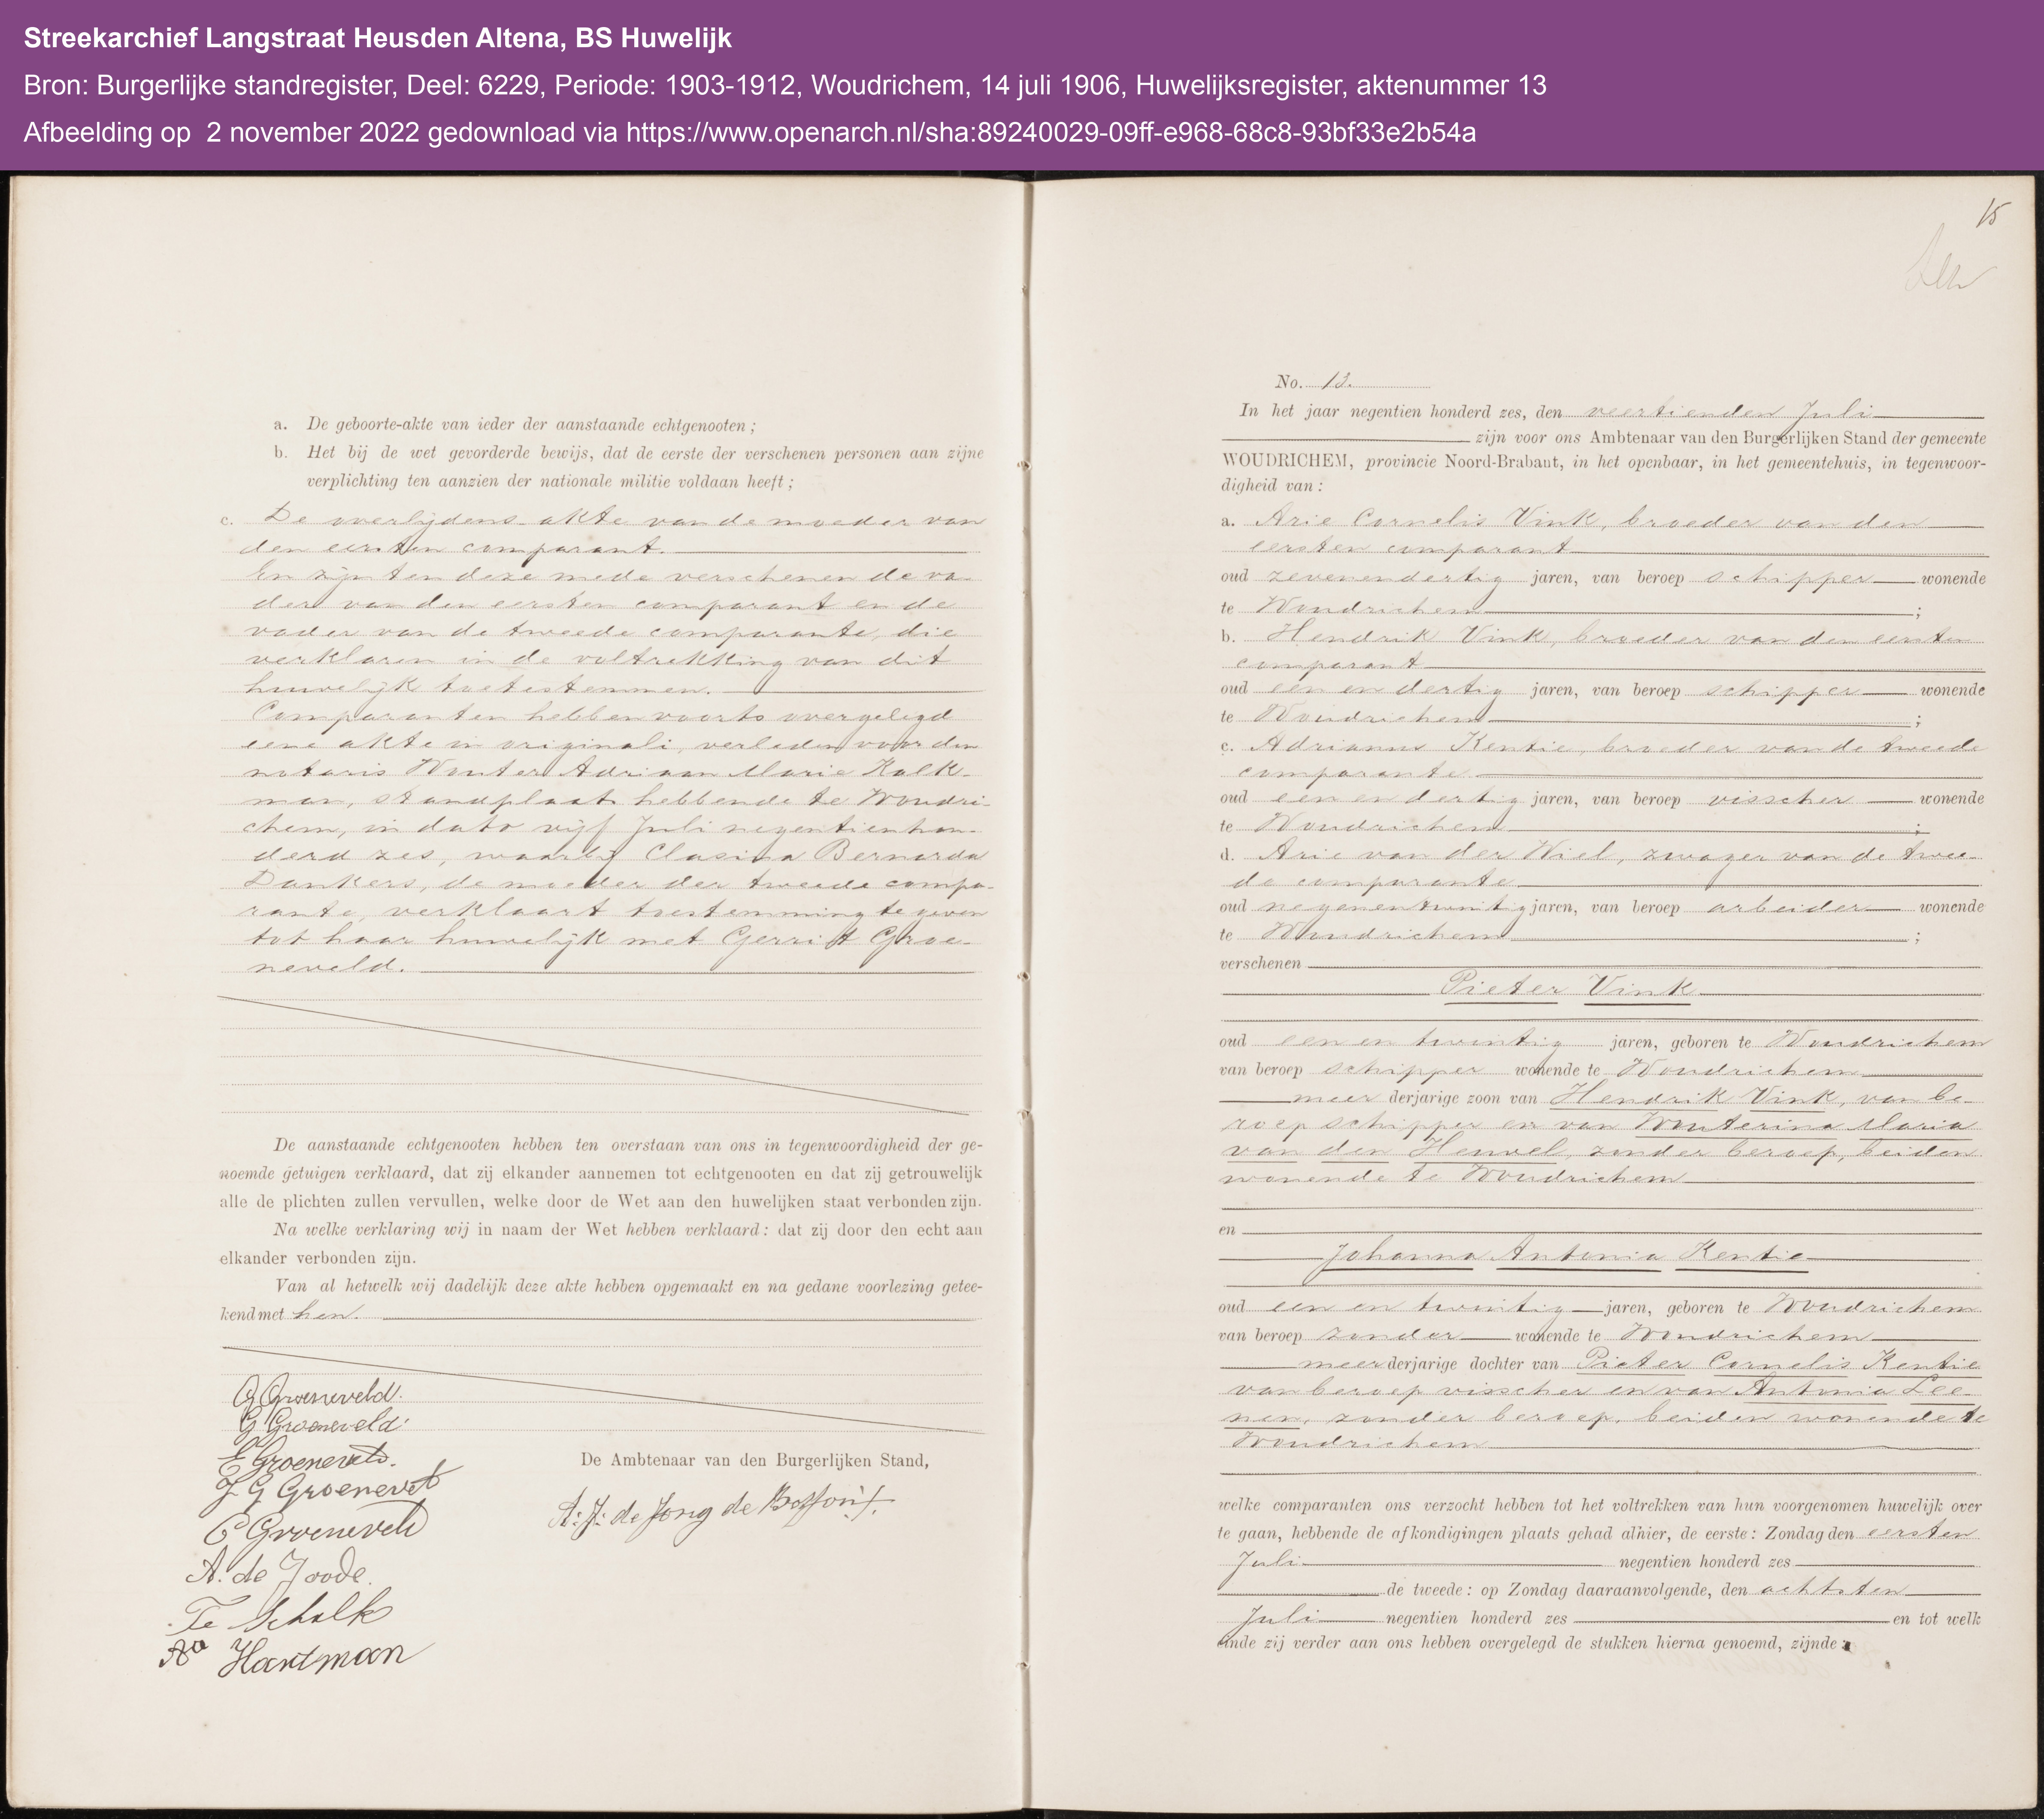 Streekarchief Langstraat Heusden Altena, BS Huwelijk
Bron: Burgerlijke standregister, Deel: 6229, Periode: 1903-1912, Woudrichem, 14 juli 1906, Huwelijksregister, aktenummer 13
Afbeelding op 2 november 2022 gedownload via https://www.openarch.nl/sha:89240029-09ff-e968-68c8-93bf33e2b54a
a. De geboorte-akte van ieder der aanstaande echtgenooten;
b. Het bij de wet gevorderde bewijs, dat de eerste der verschenen personen aan zijne
verplichting ten aanzien der nationale militie voldaan heeft;
c. De overlijdens akte van de moeder van
den eersten comparant.
En zijn ten deze mede verschenen de va-
der van den eersten comparant en de
vader van de tweede comparante, die
verklaren in de voltrekking van dit
huwelijk toetestemmen.
Comparanten hebben voorts overgelegd
eene akte in originali, verleden voor den
notaris Wouter Adriaan Marie Kolk-
man, standplaats hebbende te Woudri-
chem, in dato vijf Juli negentienhon-
derd zes, waarbij Clasina Bernarda
Dankers, de moeder der tweede compa-
rante, verklaart toestemming te geven
tot haar huwelijk met Gerrit Groe-
neveld.
De aanstaande echtgenooten hebben ten overstaan van ons in tegenwoordigheid der ge-
noemde getuigen verklaard, dat zij elkander aannemen tot echtgenooten en dat zij getrouwelijk
alle de plichten zullen vervullen, welke door de Wet aan den huwelijken staat verbonden zijn.
Na welke verklaring wij in naam der Wet hebben verklaard: dat zij door den echt aan
elkander verbonden zijn.
Van al hetwelk wij dadelijk deze akte hebben opgemaakt en na gedane voorlezing getee-
kend met hen.
G Groeneveld.
G Groeneveld
E Groeneveld.
J G Groenevelt
C Groeneveld
A. de Joode.
Te Schalk
Aa Hartman
De Ambtenaar van den Burgerlijken Stand,
A. J. de Jong de
15
No. 13.
In het jaar negentien honderd zes, den veertienden Juli
zijn voor ons Ambtenaar van den Burgerlijken Stand der gemeente
WOUDRICHEM, provincie Noord-Brabant, in het openbaar, in het gemeentehuis, in tegenwoor-
digheid van:
a. Arie Cornelis Vink, broeder van den
eersten comparant
oud zevenendertig jaren, van beroep schipper wonende
te Woudrichem;
b. Hendrik Vink, broeder van den eersten
comparant
oud een en dertig jaren, van beroep schipper wonende
te Woudrichem;
c. Adrianus Kentie, broeder van de tweede
comparante
oud een en dertig jaren, van beroep visscher wonende
te Woudrichem;
d. Arie van der Wiel, zwager van de twee-
de comparante
oud negenentwintig jaren, van beroep arbeider wonende
te Woudrichem;
verschenen
Pieter Vink
oud een en twintig jaren, geboren te Woudrichem
van beroep schipper wonende te Woudrichem
meer derjarige zoon van Hendrik Vink, van be-
roep schipper en van Wouterina Maria
van den Heuvel, zonder beroep, beiden
wonende te Woudrichem
en
Johanna Antonia Kentie
oud een en twintig jaren, geboren te Woudrichem
van beroep zonder wonende te Woudrichem
meer derjarige dochter van Pieter Cornelis Kentie
van beroep visscher en van Antonia Lee-
nen, zonder beroep, beiden wonende te
Woudrichem
welke comparanten ons verzocht hebben tot het voltrekken van hun voorgenomen huwelijk over
te gaan, hebbende de afkondigingen plaats gehad alhier, de eerste: Zondag den eersten
Juli negentien honderd zes
de tweede: op Zondag daaraanvolgende, den achtsten
Juli negentien honderd zes en tot welk
einde zij verder aan ons hebben overgelegd de stukken hierna genoemd, zijnde: